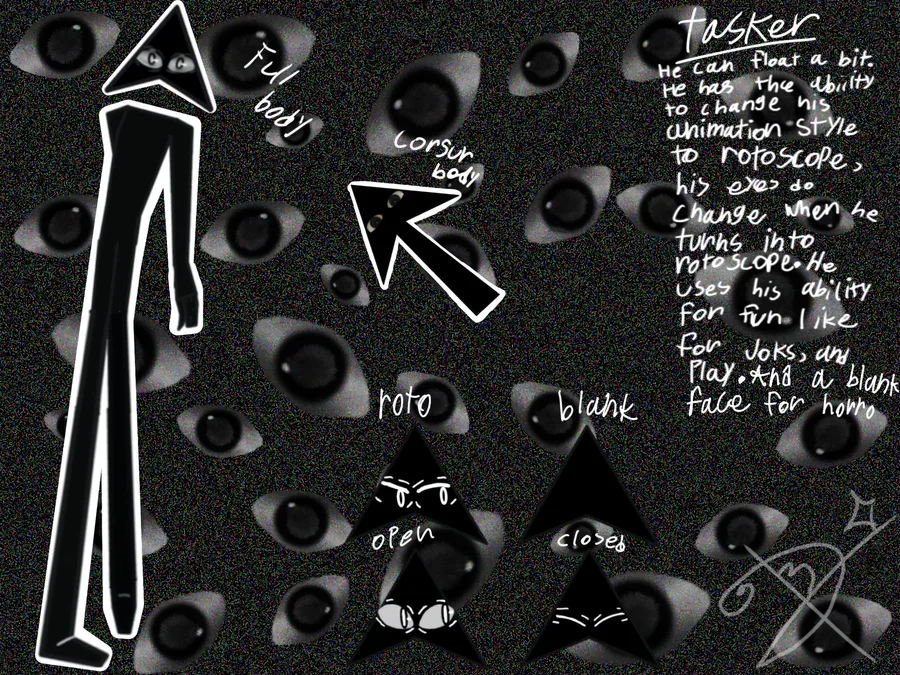 tasker
Full
body
He can float a bit.
He has the ability
to change his
animation style
to rotoscope,
his eyes do
change when he
turns into
rotoscope. He
uses his ability
for fun like
for Joks, and
Play. And a blank
face for horro
Corsur
body
roto
blank
open
closed